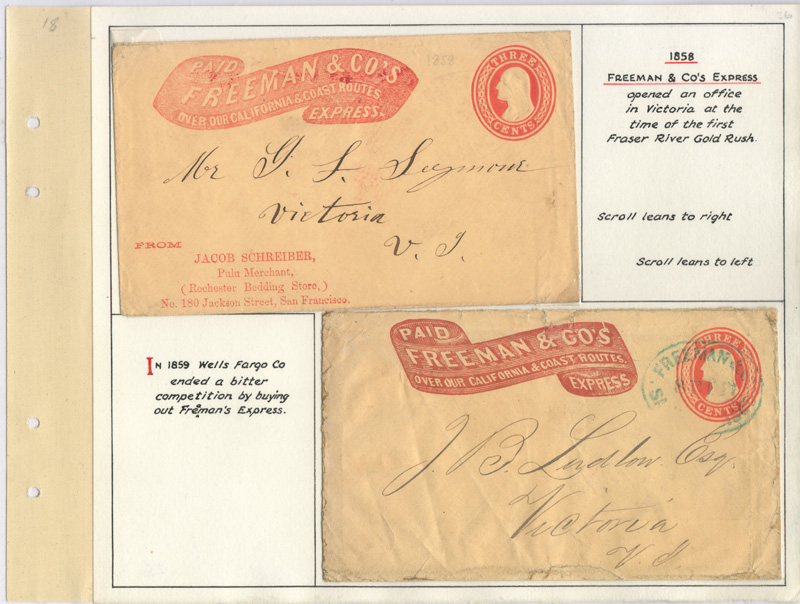 18
26
PAID
FREEMAN & CO'S
OVER OUR CALIFORNIA & COAST ROUTES
EXPRESS.
1858
THREE
CENTS
Mr G. S. Seymour
Victoria
V. I.
FROM
JACOB SCHREIBER,
Pulu Merchant,
(Rochester Bedding Store,)
No. 180 Jackson Street, San Francisco.
1858
FREEMAN & CO'S EXPRESS
opened an office
in Victoria at the
time of the first
Fraser River Gold Rush.
Scroll leans to right
Scroll leans to left
IN 1859 Wells Fargo Co
ended a bitter
competition by buying
out Freman's Express.
e
PAID
FREEMAN & CO'S
OVER OUR CALIFORNIA & COAST ROUTES.
EXPRESS
THREE
CENTS
FREEMAN
J. B. Ludlow. Esq.
Victoria
V. I